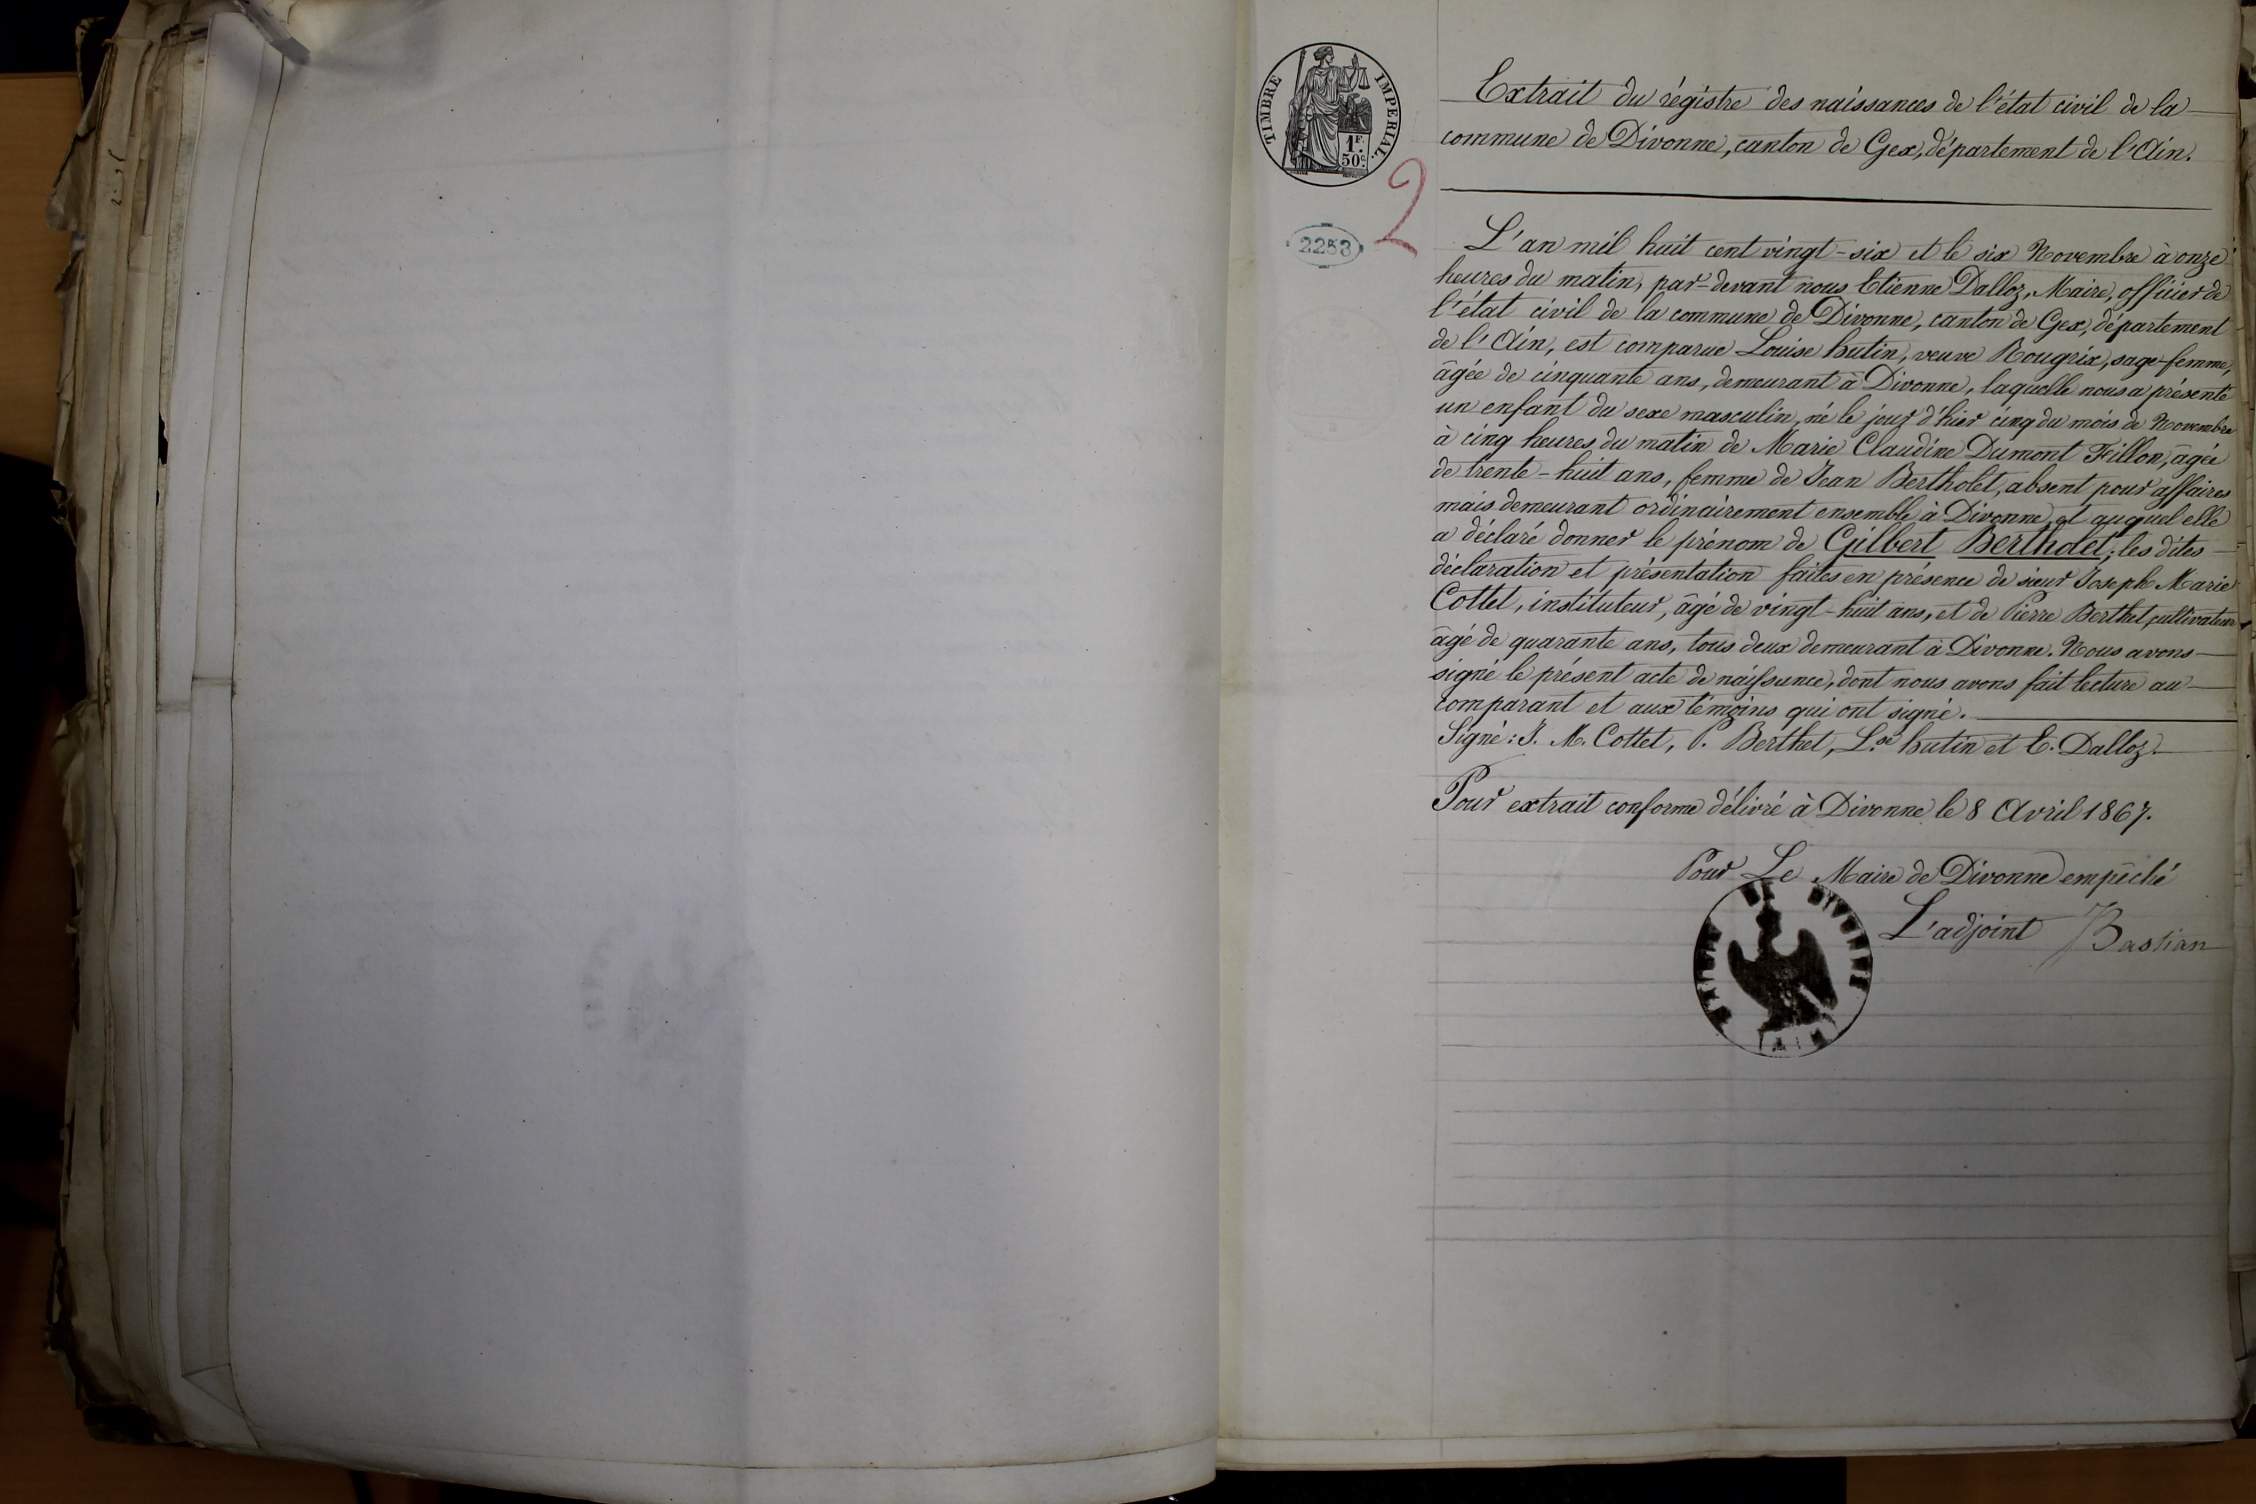 TIMBRE IMPERIAL.
1F.
50c.
2
2253
Extrait du régistre des naissances de l'état civil de la
commune de Divonne, canton de Gex, département de l'Ain.
L'an mil huit cent vingt-six et le six Novembre à onze
heures du matin, par-devant nous Etienne Dalloz, Maire, officier de
l'état civil de la commune de Divonne, canton de Gex, département
de l'Ain, est comparue Louise hutin, veuve Rougrix, sage-femme,
âgée de cinquante ans, demeurant à Divonne, laquelle nous a présenté
un enfant du sexe masculin, né le jour d'hier cinq du mois de Novembre
à cinq heures du matin de Marie Claudine Dumont Fillon, âgée
de trente-huit ans, femme de Jean Bertholet, absent pour affaires
mais demeurant ordinairement ensemble à Divonne, et auquel elle
a déclaré donner le prénom de Gilbert Bertholet; les dites
déclaration et présentation faites en présence de sieur Joseph Marie
Cottet, instituteur, âgé de vingt-huit ans, et de Pierre Berthet, cultivateur
âgé de quarante ans, tous deux demeurant à Divonne. Nous avons
signé le présent acte de naissance, dont nous avons fait lecture au
comparant et aux témoins qui ont signé.
Signé: J. M. Cottet, P. Berthet, L.se hutin et E. Dalloz.
Pour extrait conforme délivré à Divonne le 8 Avril 1867.
Pour Le Maire de Divonne empêché
L'adjoint Bastian
MAIRIE DE DIVONNE
(AIN)